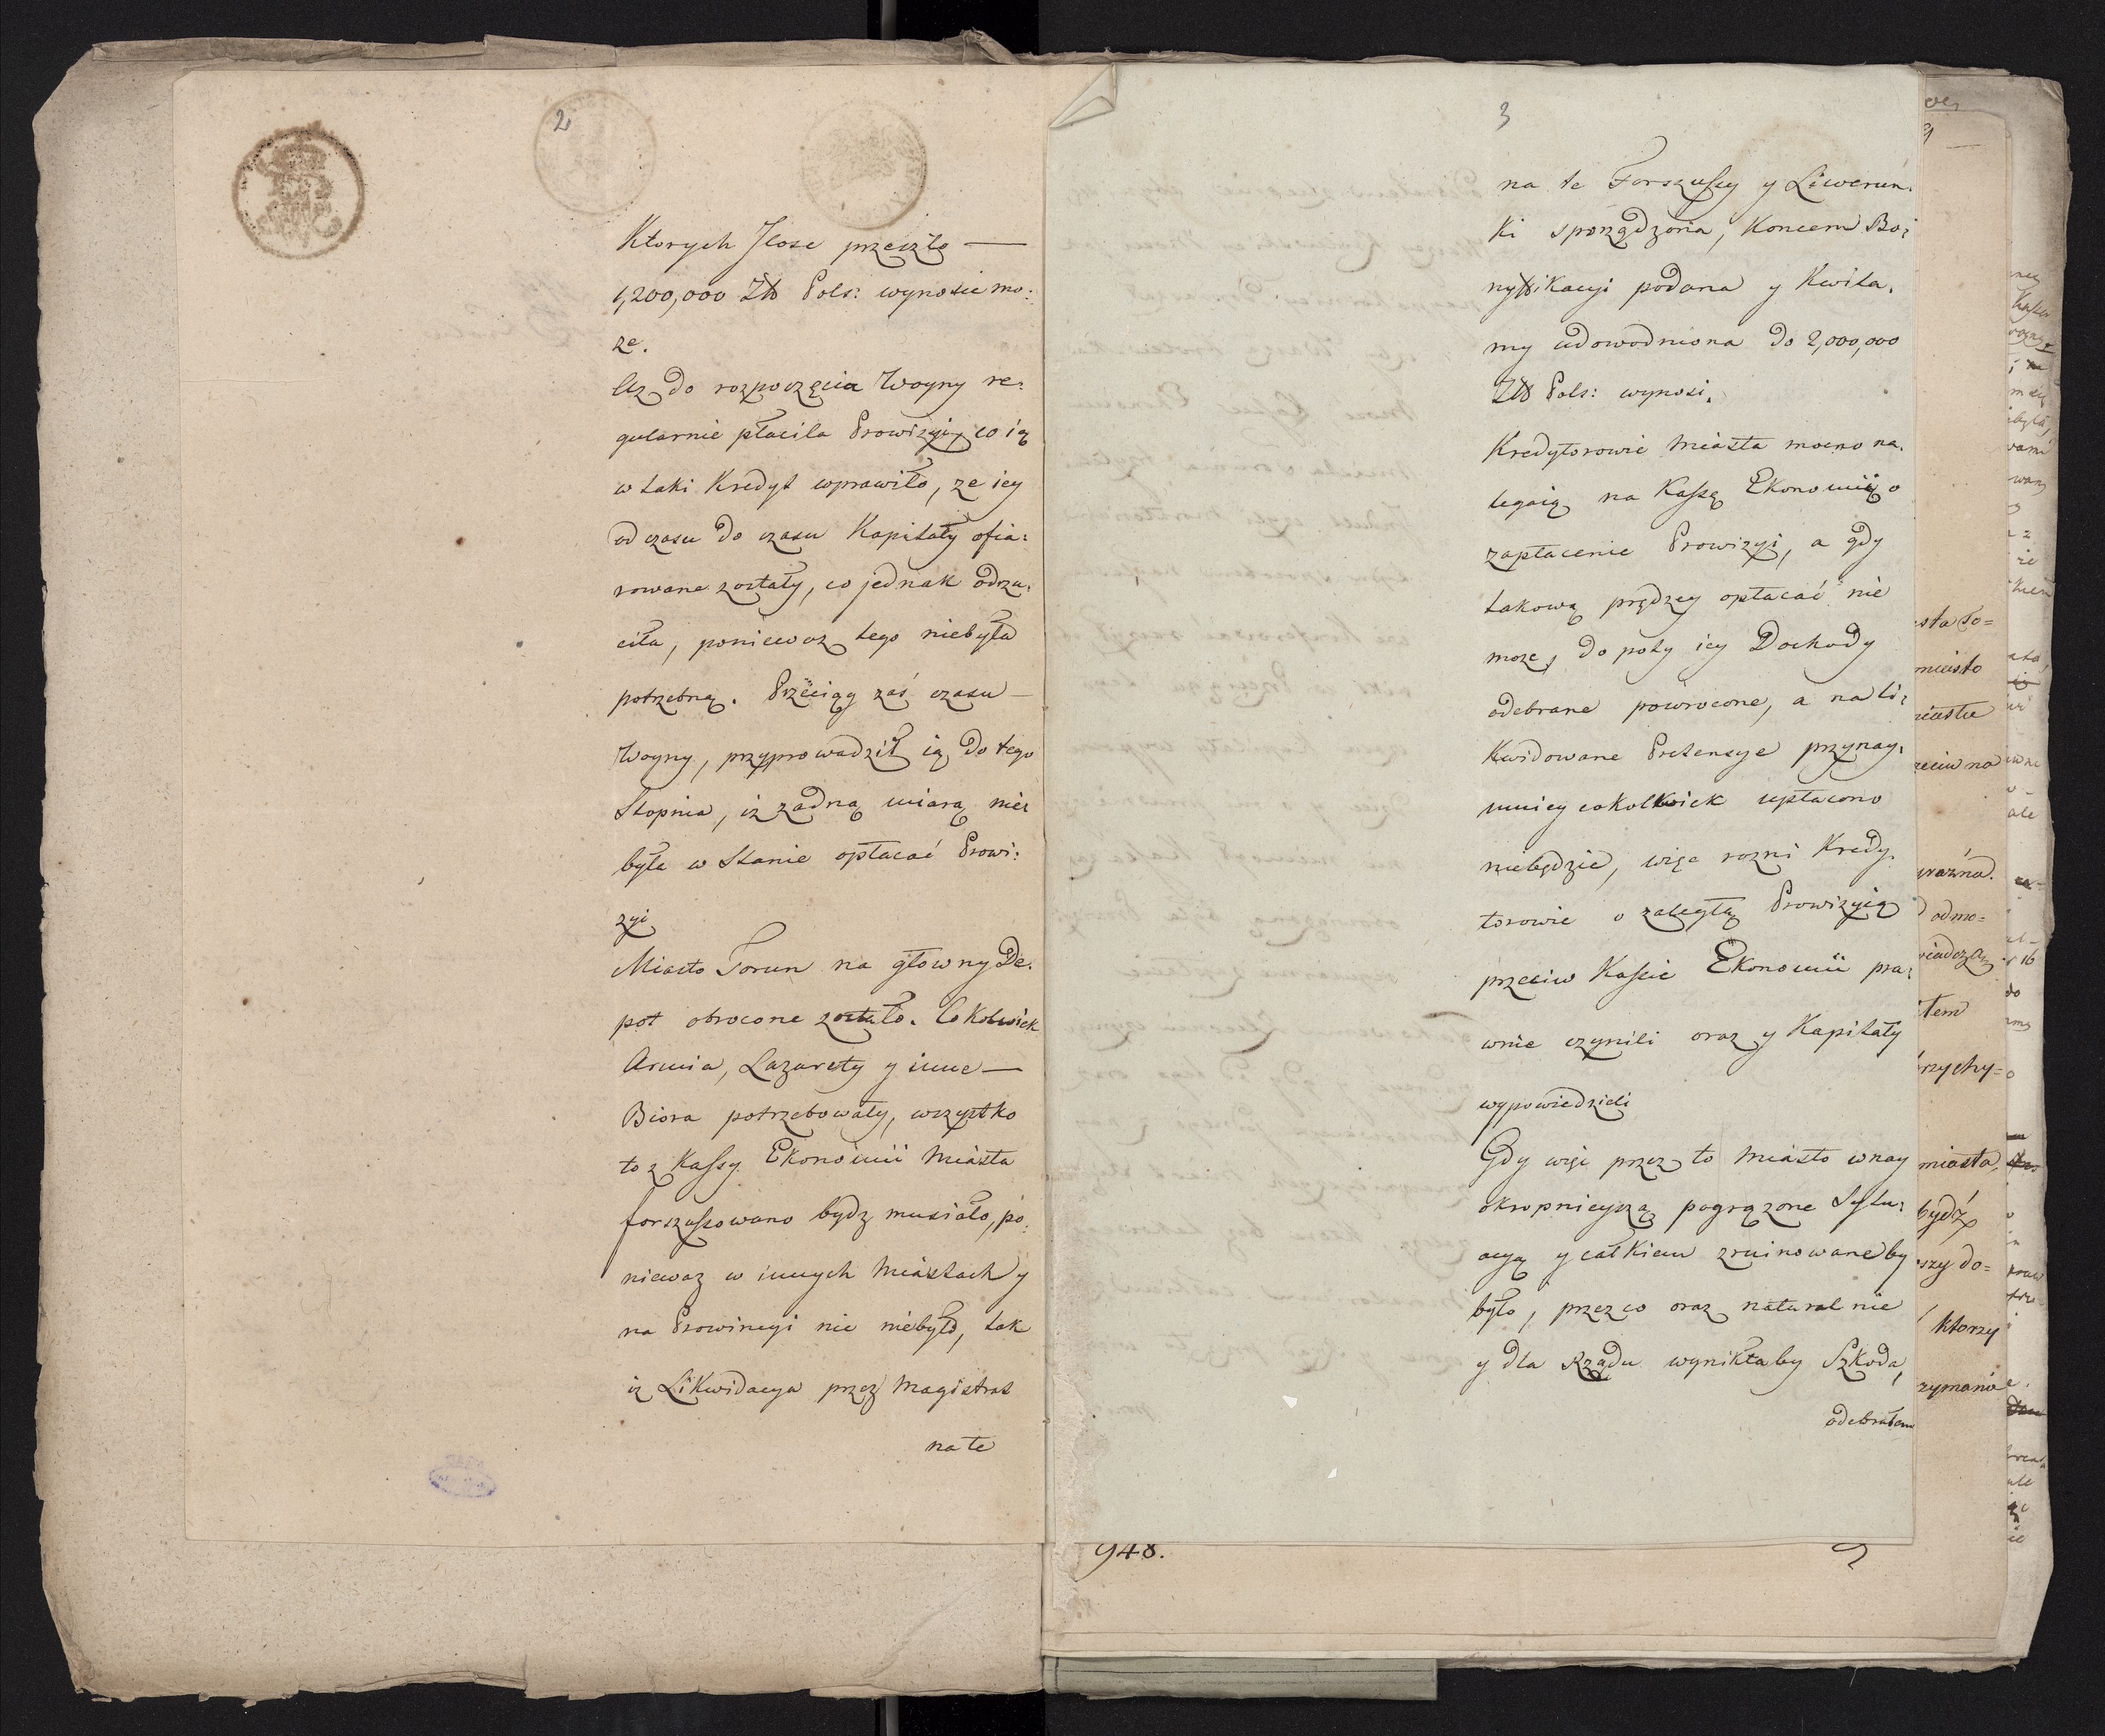 2
Ktorych Ilosc przeszło —
1,200,000 Zł Pols: wynosic mo:
ze.
Az do rozpoczęcia Woyny re:
gularnie płaciła Prowizyi, co ią
w taki Kredyt wprawiło, ze iey
od czasu do czasu Kapitały ofia:
rowane zostały, co jednak odrzu:
ciła, poniewaz tego niebyła
potrzebną. Przeciąg zaś czasu —
Woyny, przyprowadził ią do tego
Stopnia, iz zadną miarą nie
była w Stanie opłacać Prowi:
zyi
Miasto Torun na głowny De.
pot obrocone zostało. Cokolwiek
Armia, Lazarety y inne —
Biora potrzebowały, wszystko
to z Kassy Ekonomii Miasta
forszusowano bydz musiało, po:
niewaz w innych Miastach y
na Prowincyi nic niebyło, tak
iz Likwidacya przez Magistrat
na te
3
na te Forszussy y Liwerun:
ki sporządzona, koncem Bo:
nyfikacyi podana y Kwita:
my udowodniona do 2,000,000
Zł Pols: wynosi.
Kredytorowie Miasta mocno na:
legaią na Kassę Ekonomii o
zapłacenie Prowizyi, a gdy
takową prędzey opłacać nie
moze, do poty iey Dochody
odebrane powrocone, a na li:
kwidowane Pretensye przynay:
mniey cokolwiek upłacono
niebędzie, więc rozni Kredy:
torowie o zaległą Prowizyią
przeciw Kassie Ekonomii pra:
wnie czynili oraz y Kapitały
wypowiedzieli
Gdy więc przez to Miasto w nay
okropnieyszą pogrązone Sytu:
acyą y całkiem zruinowane by
było, przez co oraz naturalnie
y dla Rządu wynikłaby Szkoda,
odebrałem
948.
miasto
miasta,
bydź
ktorzy